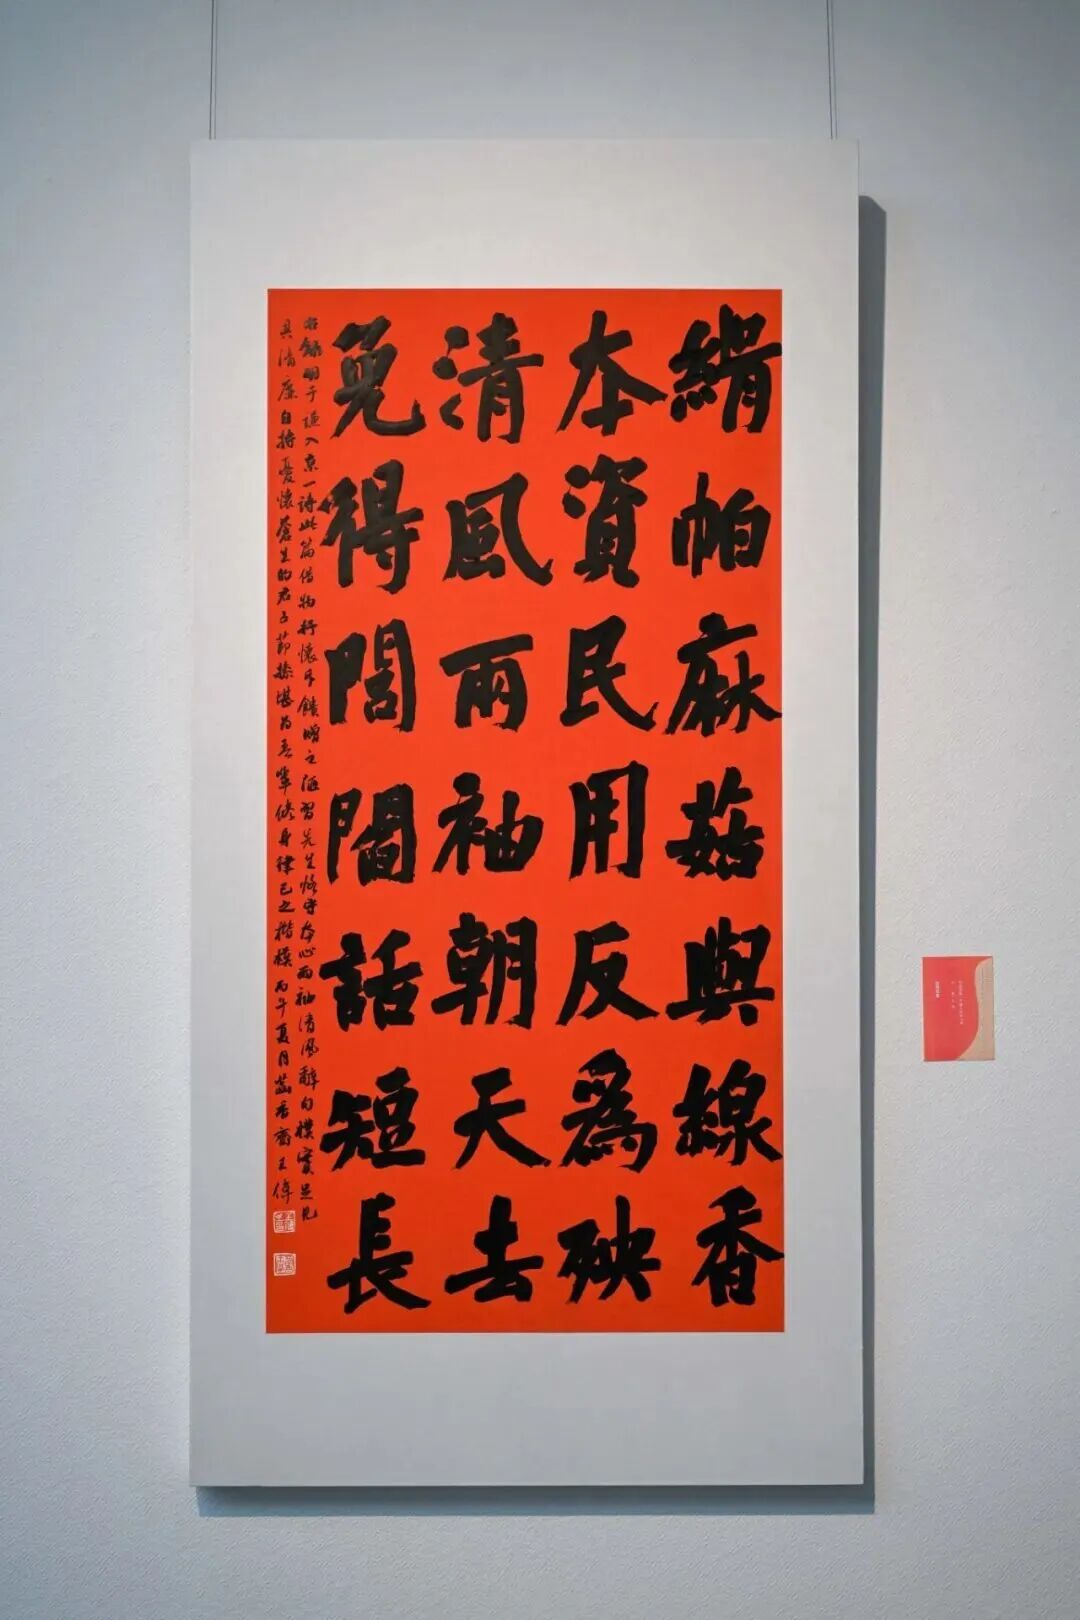 絹帕麻菇與線香
本資民用反為殃
清風兩袖朝天去
免得閭閻話短長
右錄明于謙入京一詩此篇借物抒懷斥饋贈之陋習先生恪守本心兩袖清風辭句樸實足見
其清廉自持憂懷蒼生的君子節操堪為吾輩修身律己之楷模丙午夏月香齋王偉